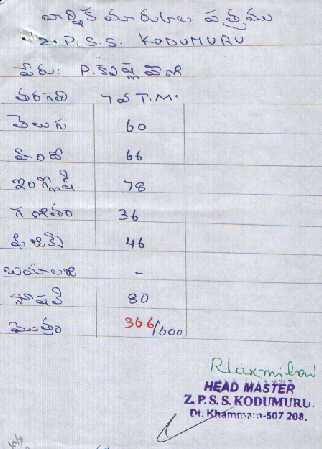 వార్షిక మార్కుల పత్రము
Z.P.S.S. KODUMURU
పేరు: P.కృష్ణ వేణి
తరగతి 7వ T.M.
తెలుగు 60
హిందీ 66
ఇంగ్లీష్ 78
గణితం 36
ఫిజిక్స్ 46
బయాలజి -
సోషల్ 80
మొత్తం 366/600
Rlaxmibai
HEAD MASTER
Z.P.S.S. KODUMURU.
Dt. Khammam-507 208.